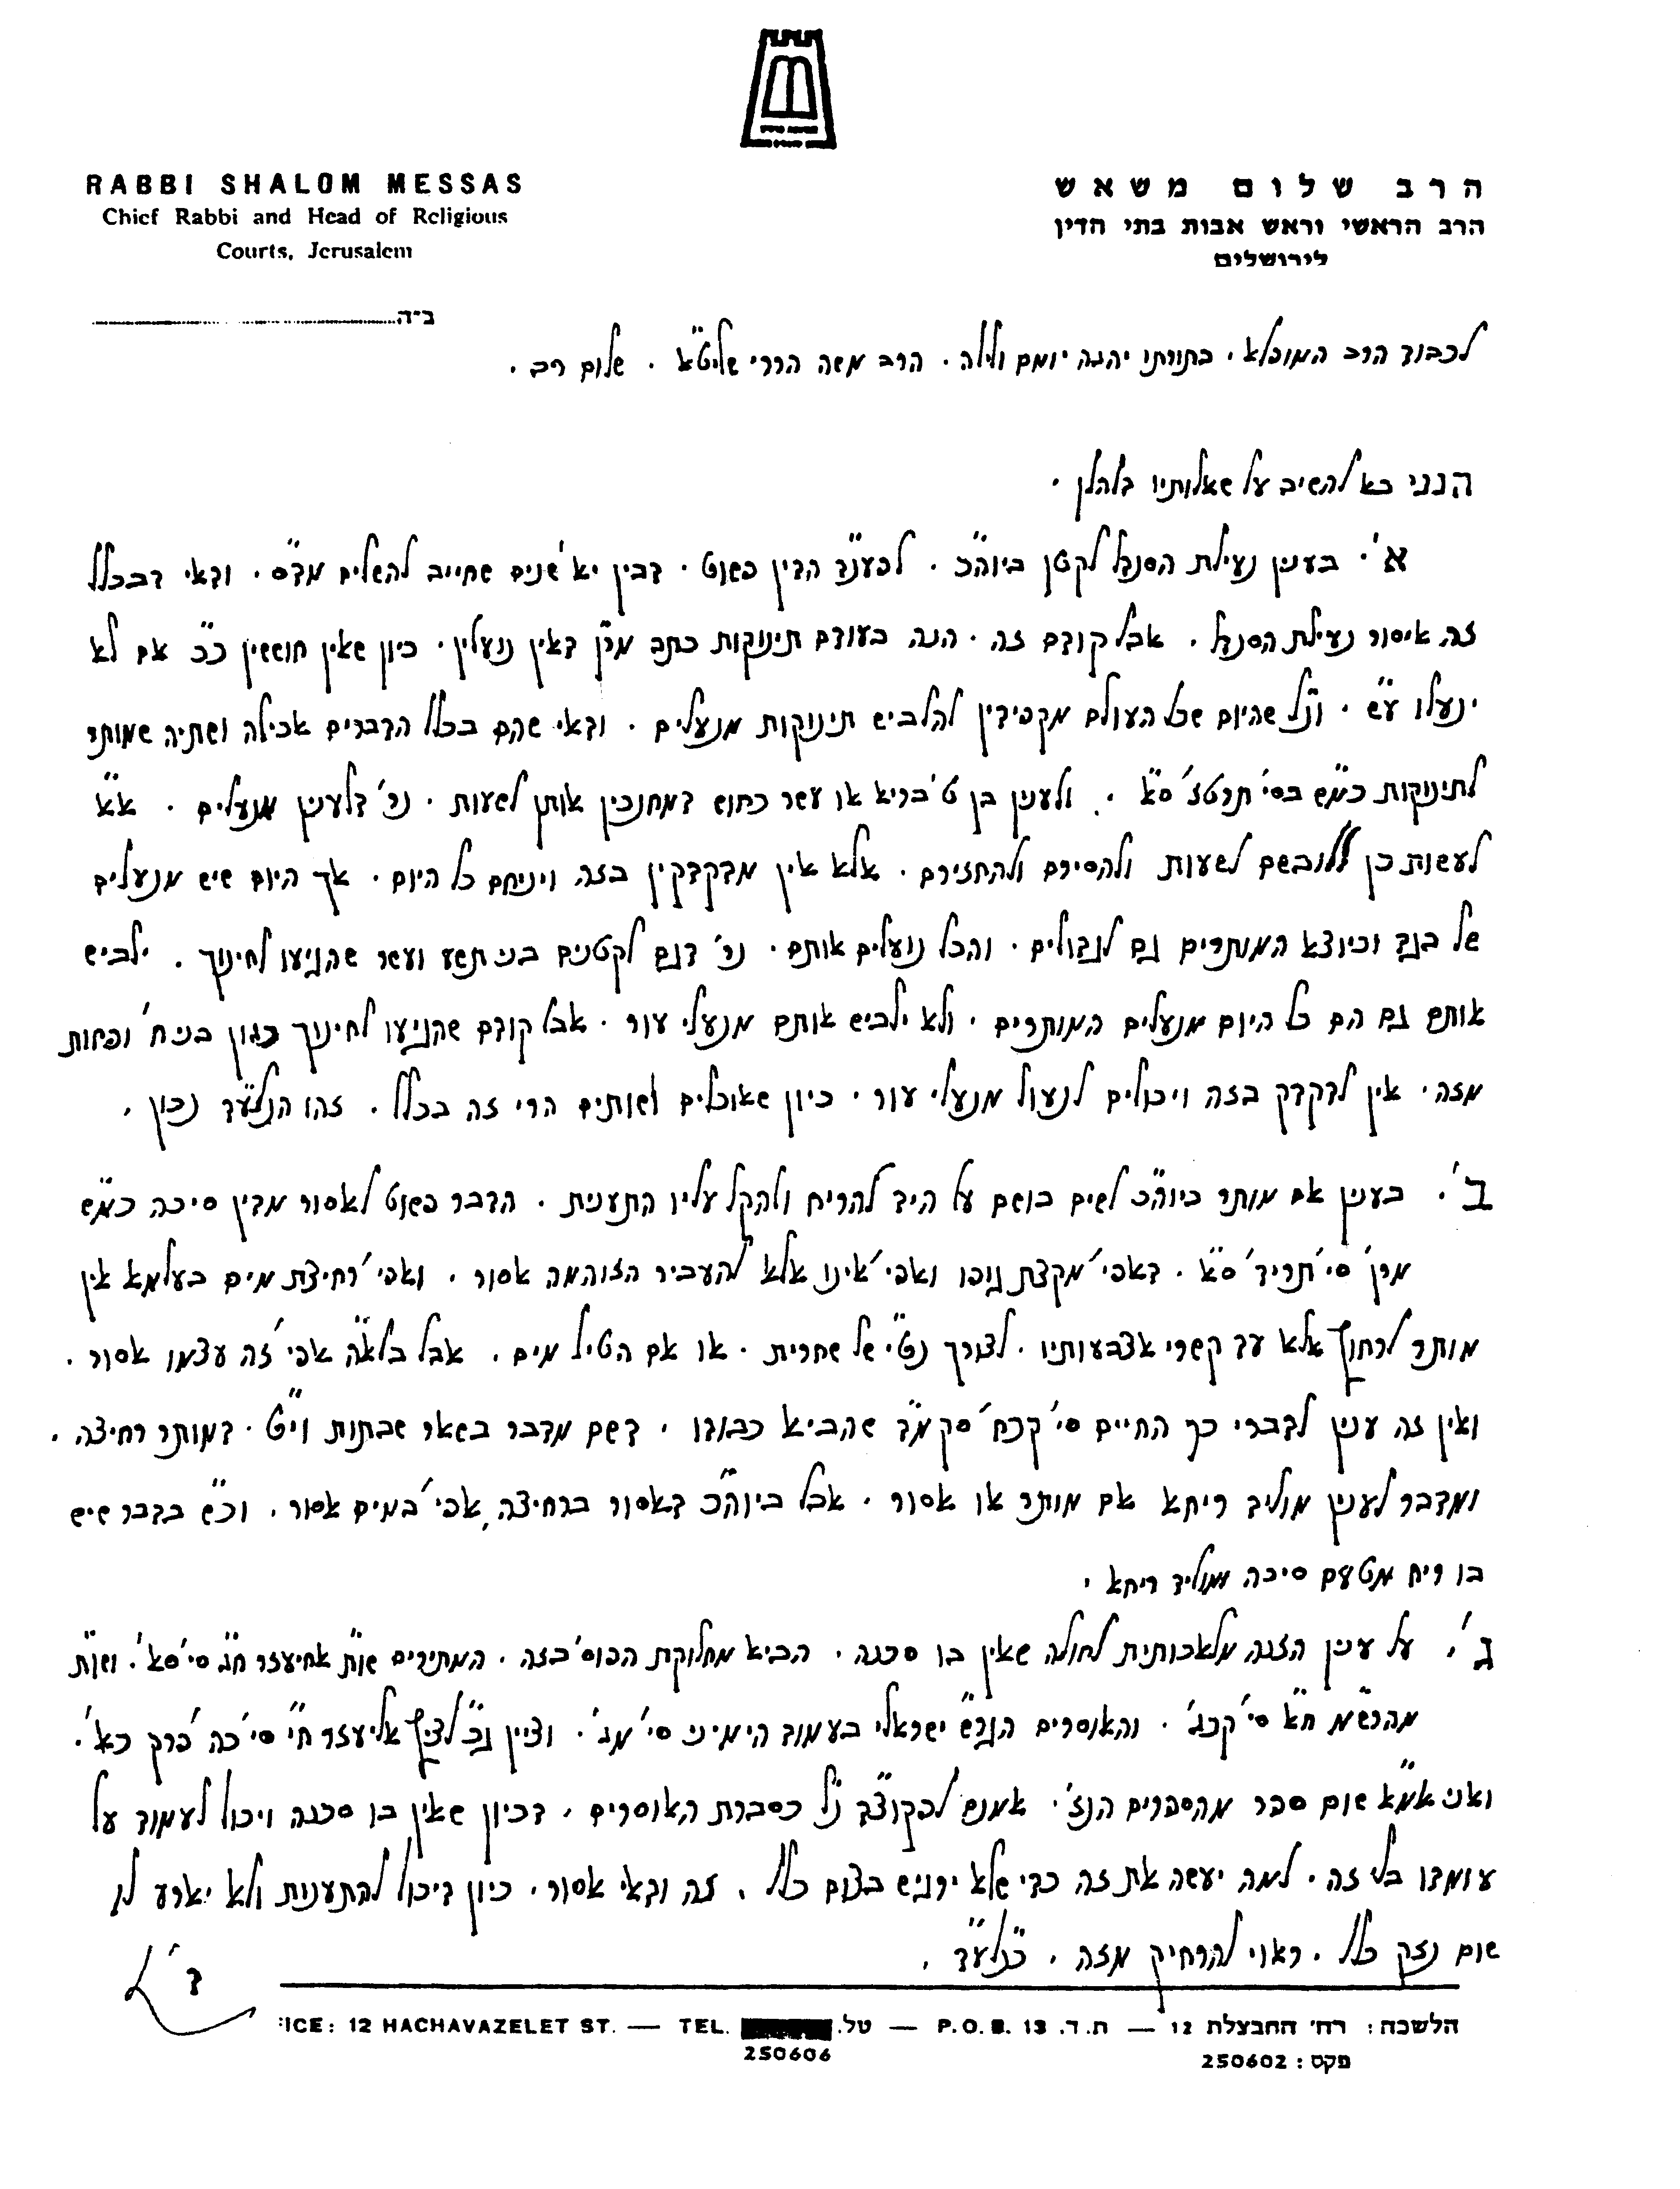 RABBI SHALOM MESSAS
Chief Rabbi and Head of Religious
Courts, Jerusalem
הרב שלום משאש
הרב הראשי וראש אבות בתי הדין
לירושלים
ב״ה
לכבוד הרב המופלא. בתורתו יהגה יומם ולילה. הרב משה הררי שליט״א. שלום רב.
הנני בא להשיב על שאלותיו בלהלן.
א'. בענין נעילת הסנדל לקטן ביוה״כ. לפענ״ד הדין פשוט. דבין יא' שנים שחייב להשלים מד״ס. ודאי דבכלל
זה איסור נעילת הסנדל. אבל קודם זה. הנה בעודם תינוקות כתב מר״ן דאין נועלין. כיון שאין חוששין כ״כ אם לא
ינעלו ע״ש. ונ״ל שהיום שכל העולם מקפידין להלביש תינוקות מנעלים. ודאי שהם בכלל הדברים אכילה ושתיה שמותר
לתינוקות כמ״ש בסי' תרטז' ס״א. ולענין בן ט' בריא או עשר כחוש דמחנכין אותן לשעות. נר' דלענין מנעלים. א״א
לעשות כן ללובשם לשעות ולהסירם ולהחזירם. אלא אין מדקדקין בזה ויניחם כל היום. אך היום שיש מנעלים
של בגד וכיוצא המותרים גם לגדולים. והכל נועלים אותם. נר' דגם לקטנים בני תשע ועשר שהגיעו לחינוך. ילביש
אותם גם הם כל היום מנעלים המותרים. ולא ילביש אותם מנעלי עור. אבל קודם שהגיעו לחינוך כגון בני ח' ופחות
מזה. אין לדקדק בזה ויכולים לנעול מנעלי עור. כיון שאוכלים ושותים הרי זה בכלל. זהו הנלע״ד נכון.
ב'. בענין אם מותר ביוה״כ לשים בושם על היד להריח ולהקל עליו התענית. הדבר פשוט לאסור מדין סיכה כמ״ש
מרן' סי' תריד' ס״א. דאפי' מקצת גופו ואפי' אינו אלא להעביר הזוהמה אסור. ואפי' רחיצת מים בעלמא אין
מותר לרחוץ אלא עד קשרי אצבעותיו. לצורך נט״י של שחרית. או אם הטיל מים. אבל בלא״ה אפי' זה עצמו אסור.
ואין זה ענין לדברי כף החיים סי' קכח' סק מ״ד שהביא כבודו. דשם מדבר בשאר שבתות וי״ט. דמותר רחיצה.
ומדבר לענין מוליד ריחא אם מותר או אסור. אבל ביוה״כ דאסור ברחיצה אפי' במים אסור. וכ״ש בדבר שיש
בו ריח מטעם סיכה ומוליד ריחא.
ג'. על ענין הזנה מלאכותית לחולה שאין בו סכנה. הביא מחלוקת הפוס' בזה. המתירים שו״ת אחיעזר ח״ג סי' סא'. ושו״ת
מהרש״ם ח״א סי' קכג'. והאוסרים הגר״ש ישראלי בעמוד הימיני סי' מג'. וציין ג״כ לציץ אליעזר ח״י סי' כה' פרק כא'.
ואני אמ״א שום ספר מהספרים הנז'. אמנם לפקוצ״ד נ״ל כסברת האוסרים. דכיון שאין בו סכנה ויכול לעמוד על
עומדו בלי זה. למה יעשה את זה כדי שלא ירגיש בצום כלל. זה ודאי אסור. כיון דיכול להתענות ולא יארע לו
שום נזק כלל. ראוי להרחיק מזה. כנלע״ד.
ICE: 12 HACHAVAZELET ST. — TEL. טל. — P.O.B. 13 ת.ד. — הלשכה: רח' החבצלת 12
250606
פקס: 250602